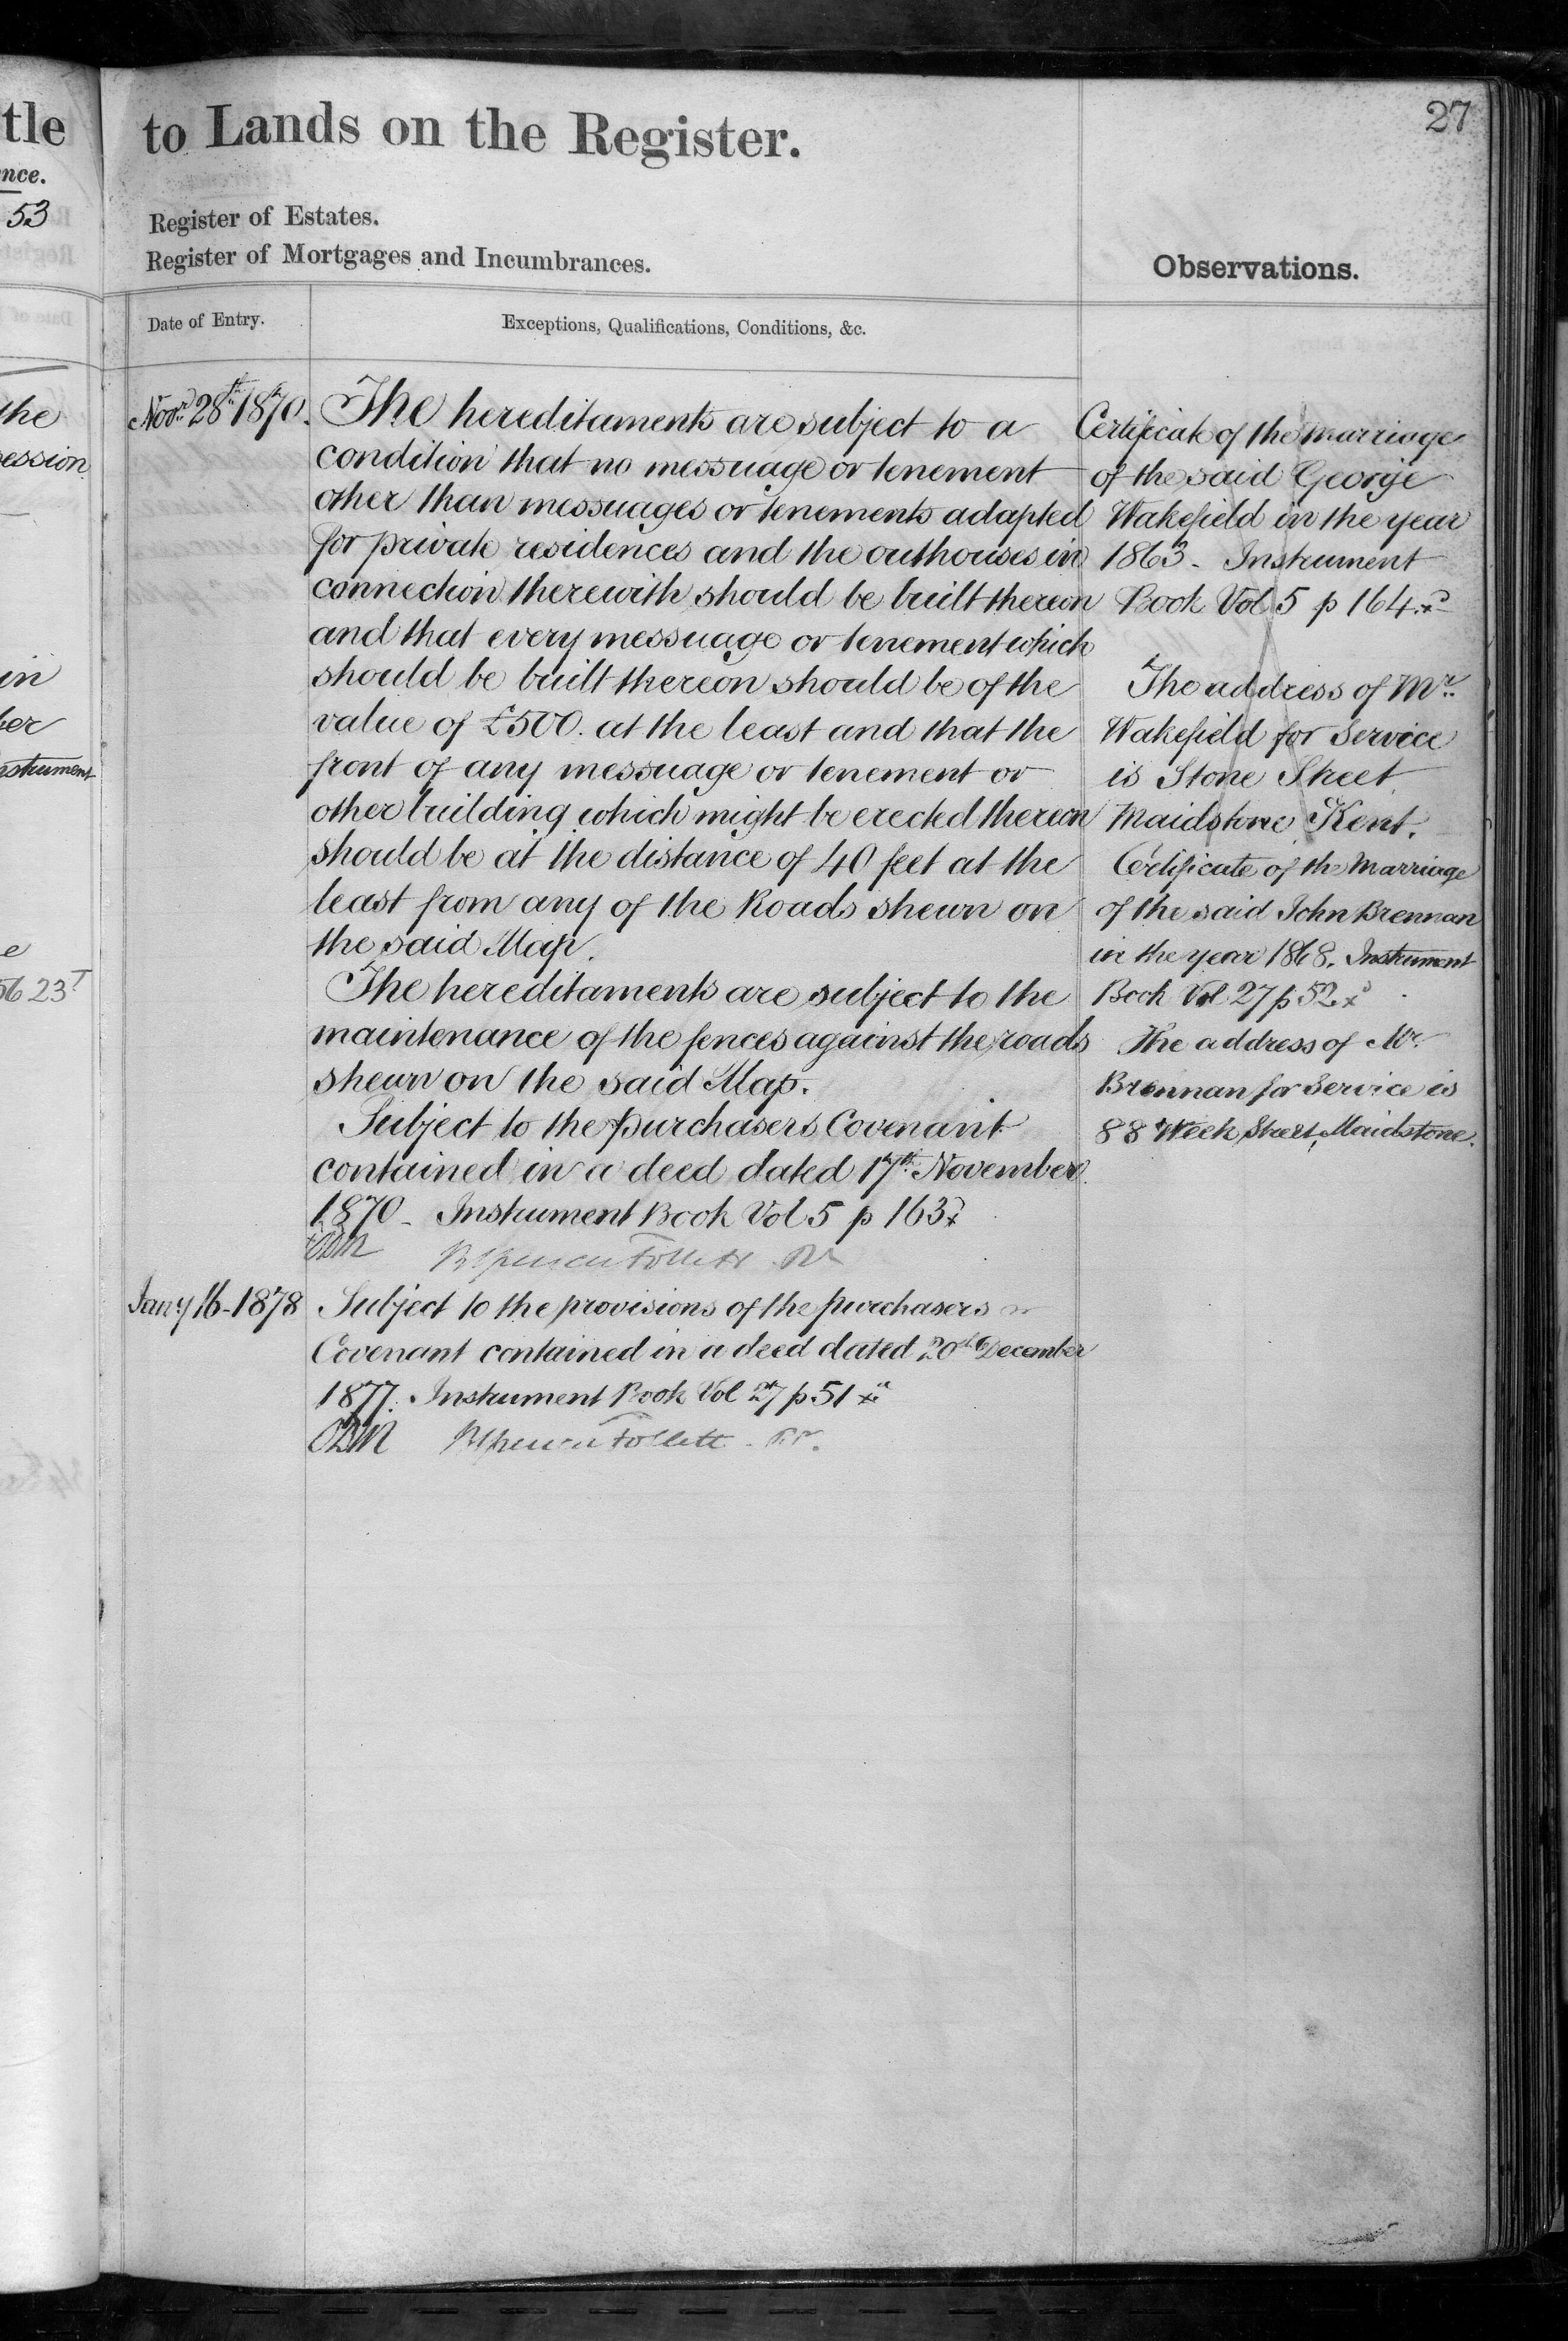 tle
nce.
53
the
ession
in
ber
nstrument
e
56 23T
27
to Lands on the Register.
Register of Estates.
Register of Mortgages and Incumbrances.
Observations.
Date of Entry.
Exceptions, Qualifications, Conditions, &c.
Novr. 28th 1870.
The hereditaments are subject to a
condition that no messuage or tenement
other than messuages or tenements adapted
for private residences and the outhouses in
connection therewith should be built thereon
and that every messuage or tenement which
should be built thereon should be of the
value of £500. at the least and that the
front of any messuage or tenement or
other building which might be erected thereon
should be at the distance of 40 feet at the
least from any of the Roads shewn on
the said Map.
The hereditaments are subject to the
maintenance of the fences against the roads
shewn on the said Map.
Subject to the purchasers Covenant
contained in a deed dated 17th November
1870 - Instrument Book Vol 5 p 163
Follett
Jany 16-1878
Subject to the provisions of the purchasers
Covenant contained in a deed dated 20th December
1877. Instrument Book Vol 27 p 51
Follett
Certificate of the marriage
of the said George
Wakefield in the year
1863 - Instrument
Book Vol 5 p 164
The address of Mr.
Wakefield for Service
is Stone Street
Maidstone Kent.
Certificate of the Marriage
of the said John Brennan
in the year 1868. Instrument
Book Vol 27 p 52
The address of Mr.
Brennan for Service is
88 Week Street, Maidstone.